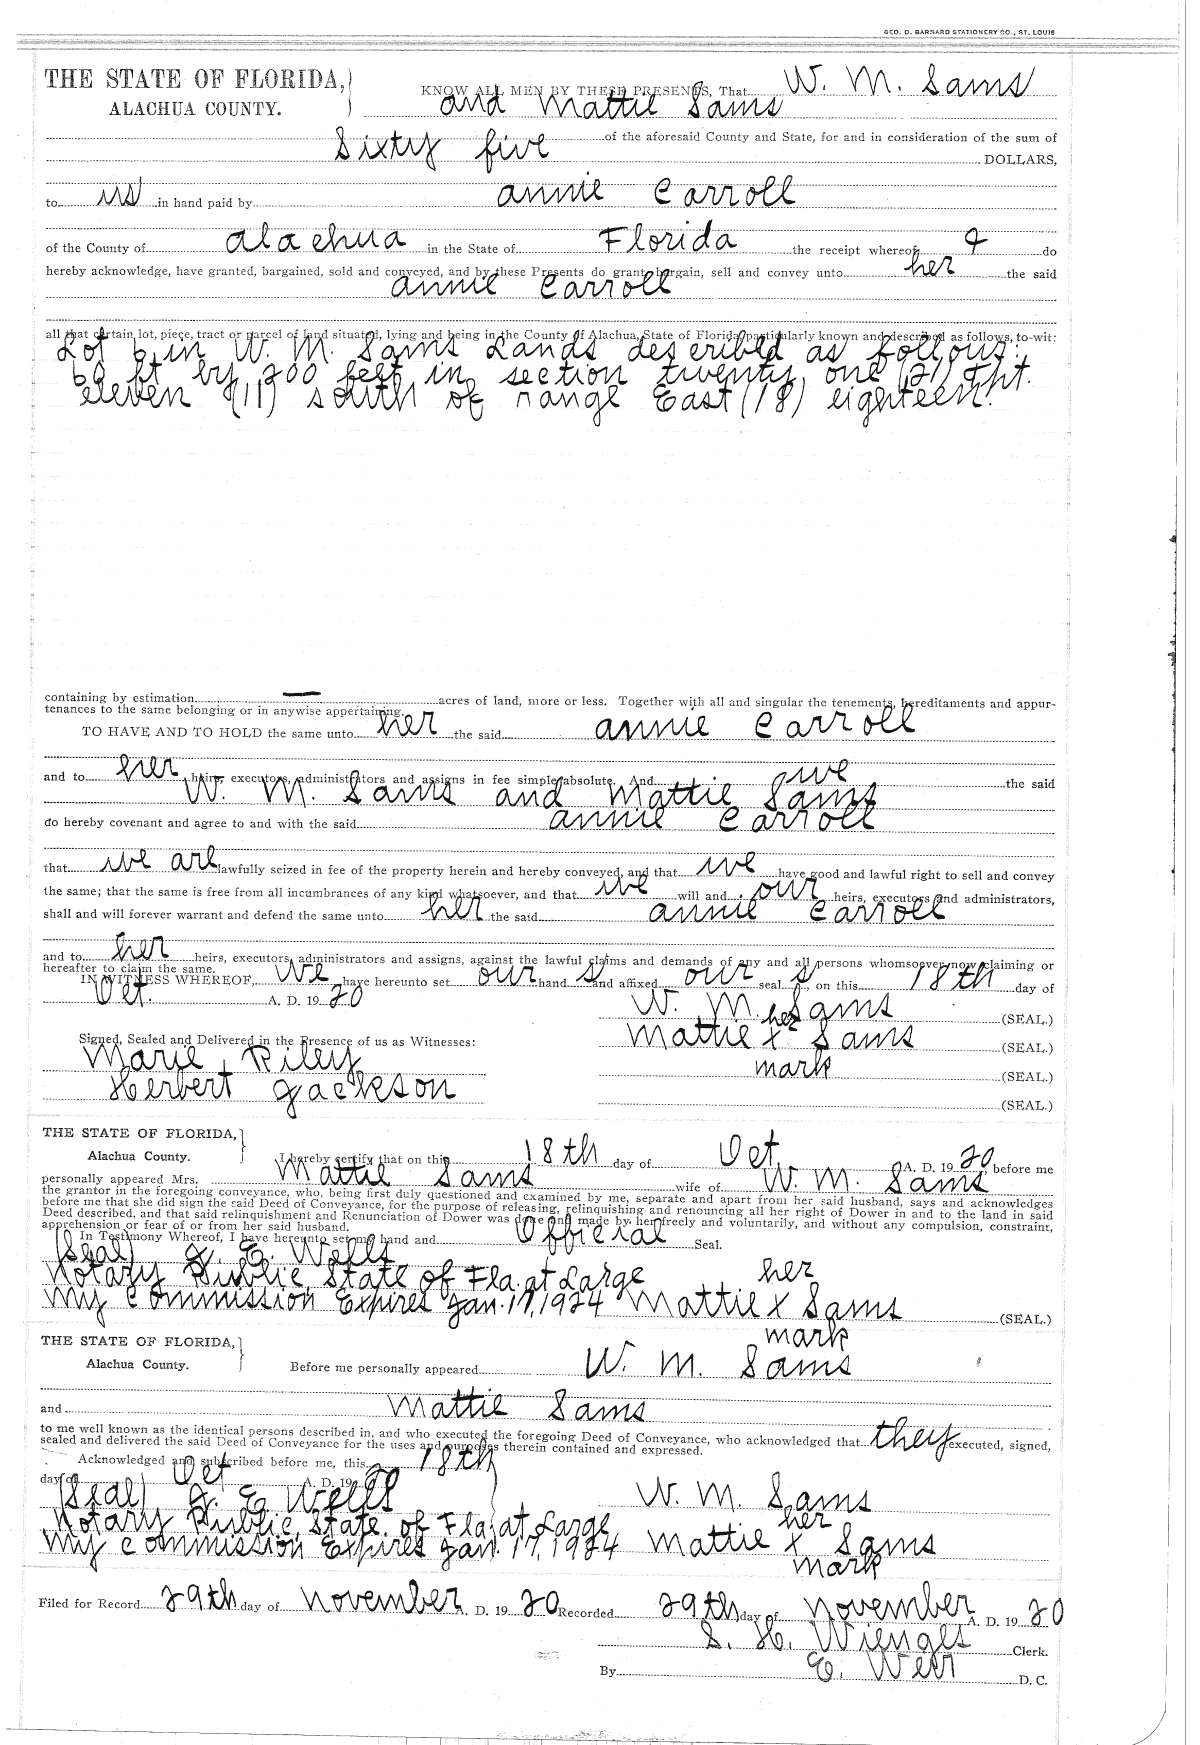 GEO. D. BARNARD STATIONERY CO., ST. LOUIS
THE STATE OF FLORIDA,
ALACHUA COUNTY.
KNOW ALL MEN BY THESE PRESENTS, That W. M. Sams
and Mattie Sams
of the aforesaid County and State, for and in consideration of the sum of
Sixty five DOLLARS,
to us in hand paid by Annie Carroll
of the County of Alachua in the State of Florida the receipt whereof do
hereby acknowledge, have granted, bargained, sold and conveyed, and by these Presents do grant, bargain, sell and convey unto her the said
Annie Carroll
all that certain lot, piece, tract or parcel of land situated, lying and being in the County of Alachua, State of Florida, particularly known and described as follows, to-wit:
Lot 6 in W. M. Sams Lands described as follows:
60 ft by 200 feet in section twenty one (21)
eleven (11) south of range East (18) eighteen.
containing by estimation — acres of land, more or less. Together with all and singular the tenements, hereditaments and appur-
tenances to the same belonging or in anywise appertaining.
TO HAVE AND TO HOLD the same unto her the said Annie Carroll
and to her heirs, executors, administrators and assigns in fee simple absolute. And we the said
W. M. Sams and Mattie Sams
do hereby covenant and agree to and with the said Annie Carroll
that we are lawfully seized in fee of the property herein and hereby conveyed, and that we have good and lawful right to sell and convey
the same; that the same is free from all incumbrances of any kind whatsoever, and that we will and our heirs, executors and administrators,
shall and will forever warrant and defend the same unto her the said Annie Carroll
and to her heirs, executors, administrators and assigns, against the lawful claims and demands of any and all persons whomsoever now claiming or
hereafter to claim the same.
IN WITNESS WHEREOF, We have hereunto set our hand s and affixed our seal s, on this 18th day of
Oct. A. D. 1920
W. M. Sams (SEAL.)
her
Mattie x Sams (SEAL.)
mark (SEAL.)
(SEAL.)
Signed, Sealed and Delivered in the Presence of us as Witnesses:
Marie Riley
Herbert Jackson
THE STATE OF FLORIDA,
Alachua County.
I hereby certify that on this 18th day of Oct A. D. 1920 before me
personally appeared Mrs. Mattie Sams wife of W. M. Sams
the grantor in the foregoing conveyance, who, being first duly questioned and examined by me, separate and apart from her said husband, says and acknowledges
before me that she did sign the said Deed of Conveyance, for the purpose of releasing, relinquishing and renouncing all her right of Dower in and to the land in said
Deed described, and that said relinquishment and Renunciation of Dower was done and made by her freely and voluntarily, and without any compulsion, constraint,
apprehension or fear of or from her said husband.
In Testimony Whereof, I have hereunto set my hand and Official Seal.
(Seal) J. E. Wells
Notary Public State of Fla. at Large
My Commission Expires Jan. 17, 1924
her
Mattie x Sams (SEAL.)
mark
THE STATE OF FLORIDA,
Alachua County.
Before me personally appeared W. M. Sams
and Mattie Sams
to me well known as the identical persons described in, and who executed the foregoing Deed of Conveyance, who acknowledged that they executed, signed,
sealed and delivered the said Deed of Conveyance for the uses and purposes therein contained and expressed.
Acknowledged and subscribed before me, this 18th
day of Oct A. D. 1920
(Seal) J. E. Wells
Notary Public, State of Fla, at Large
My Commission Expires Jan. 17, 1924
W. M. Sams
her
Mattie x Sams
mark
Filed for Record 29th day of November A. D. 1920 Recorded 29th day of November A. D. 1920
S. H. Wienges Clerk.
By E. Weir D. C.